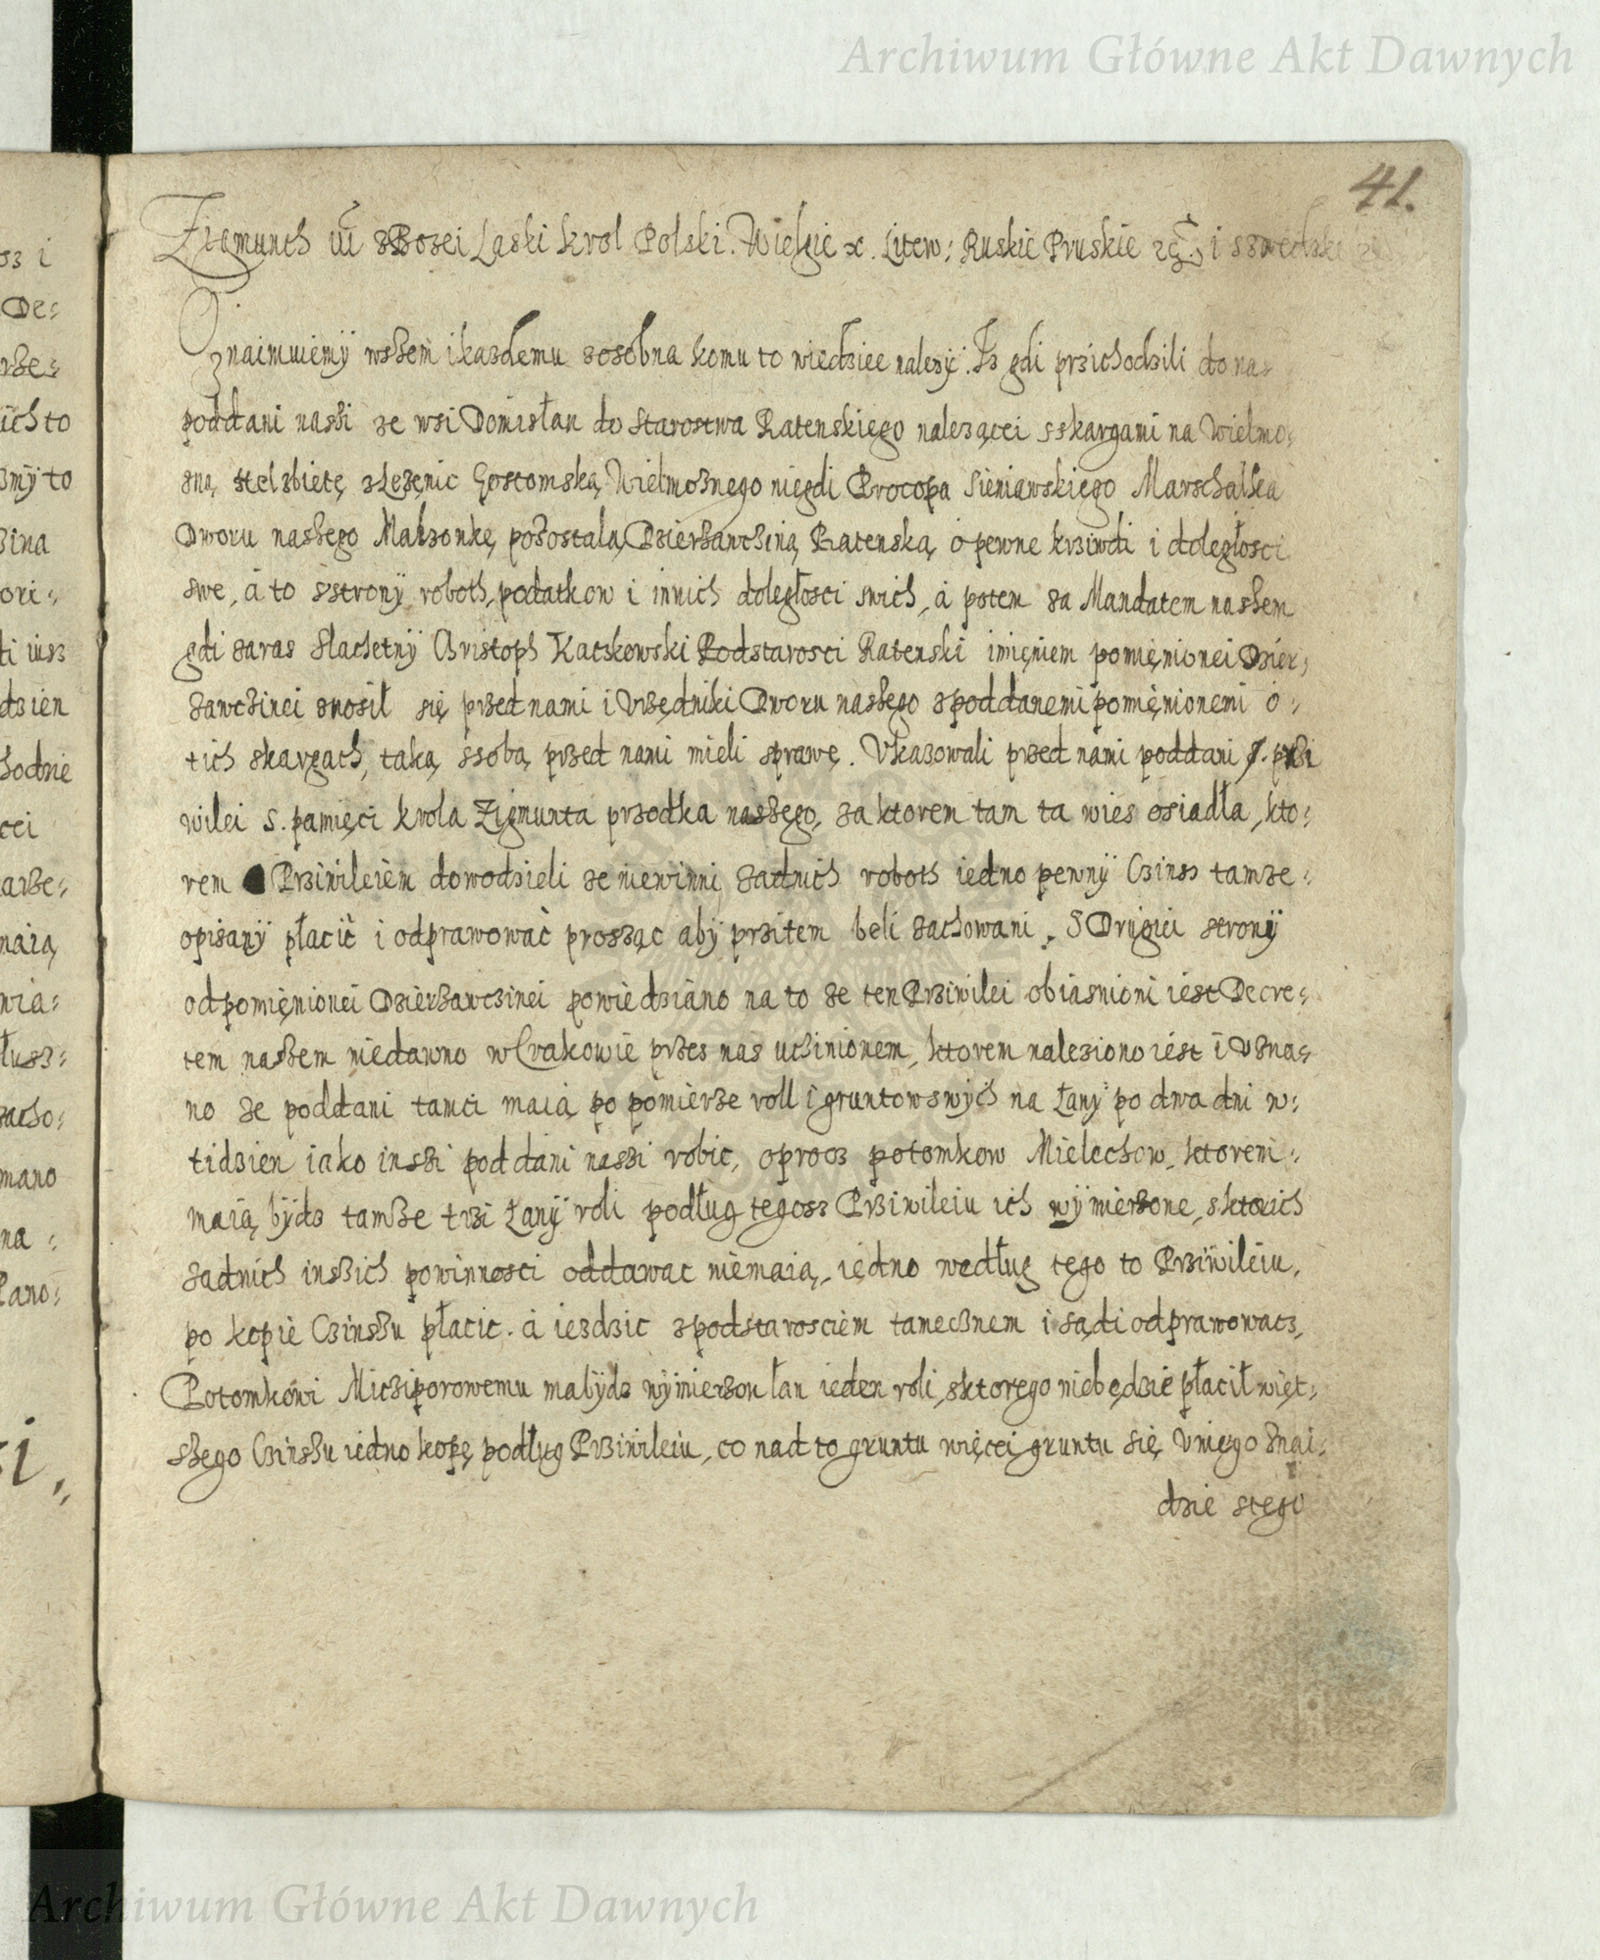 Archiwum Główne Akt Dawnych
41.
Zigmunth III z Bozei Laski Krol Polski. Wielgie x. Litew: Ruskie Pruskie etc. i szwedzki
Oznaimuiemÿ wszem i kazdemu zosobna komu to wiedziec nalezÿ. Iz gdi przichodzili do nas
poddani naszi ze wsi Domisłan do Starostwa Ratenskiego nalezącei sskargami na Wielmo:
zną Helzbietę z Lezenic Gostomską, Wielmoznego niegdi Procopa Sieniawskiego Marschalka
Dworu naszego Malzonkę pozostalą, Dzierzawcziną Ratenską o pewne krziwdi i doległosci
swe, á to sstronÿ roboth, podatkow i innich doległosci swich, á potem za Mandatem naszem
gdi zaraz slachetnÿ Christoph Kaczkowski Podstarosci Ratenski imięniem pomięnionei Dzier:
zawczinei znosił się przed nami i Vrzędniki Dworu naszego z poddanemi pomięnionemi o:
tich skargach, taką ssobą przed nami mieli sprawę. Vkazowali przed nami poddani ci przi
wilei S. pamięci krola Zigmunta przodka naszego, za ktorem tam ta wies osiadła, kto:
rem Prziwileiem dowodzieli ze niewinni zadnich roboth iedno pewnÿ Czinsz tamze:
opisanÿ płacić i odprawować prosząc abÿ przitem beli zachowani. S Drugiei stronÿ
od pomięnionei Dzierzawczinei powiedziano na to ze ten Prziwilei obiasnioni iest Decre:
tem naszem niedawno w Crakowie przes nas uczinionem, ktorem naleziono iest i Vzna:
no ze poddani tamci maią po pomierze roli i gruntow swÿch na Łanÿ po dwa dni w:
tidzien iako inszi poddani naszi robic, oprocz potomkow Mielechow, ktoremi:
maią bÿdz tamze trzi Łanÿ roli podług tegosz Prziwileiu ich wÿmierzone, sktorich
zadnich inszich powinnosci oddawac niemaią, iędno według tego to Prziwileiu,
po kopie Czinszu płacic. á iezdzic z podstarosciem tamecznem i sądi odprawowacz,
Potomkówi Micziporowemu ma bÿdz wÿmierzon łan ieden roli, sktorego niebędzie płacił więt:
szego Czinszu iedno kopę podług Prziwileiu, co nad to gruntu więcei gruntu się Vniego znai:
dzie stego
Archiwum Główne Akt Dawnych